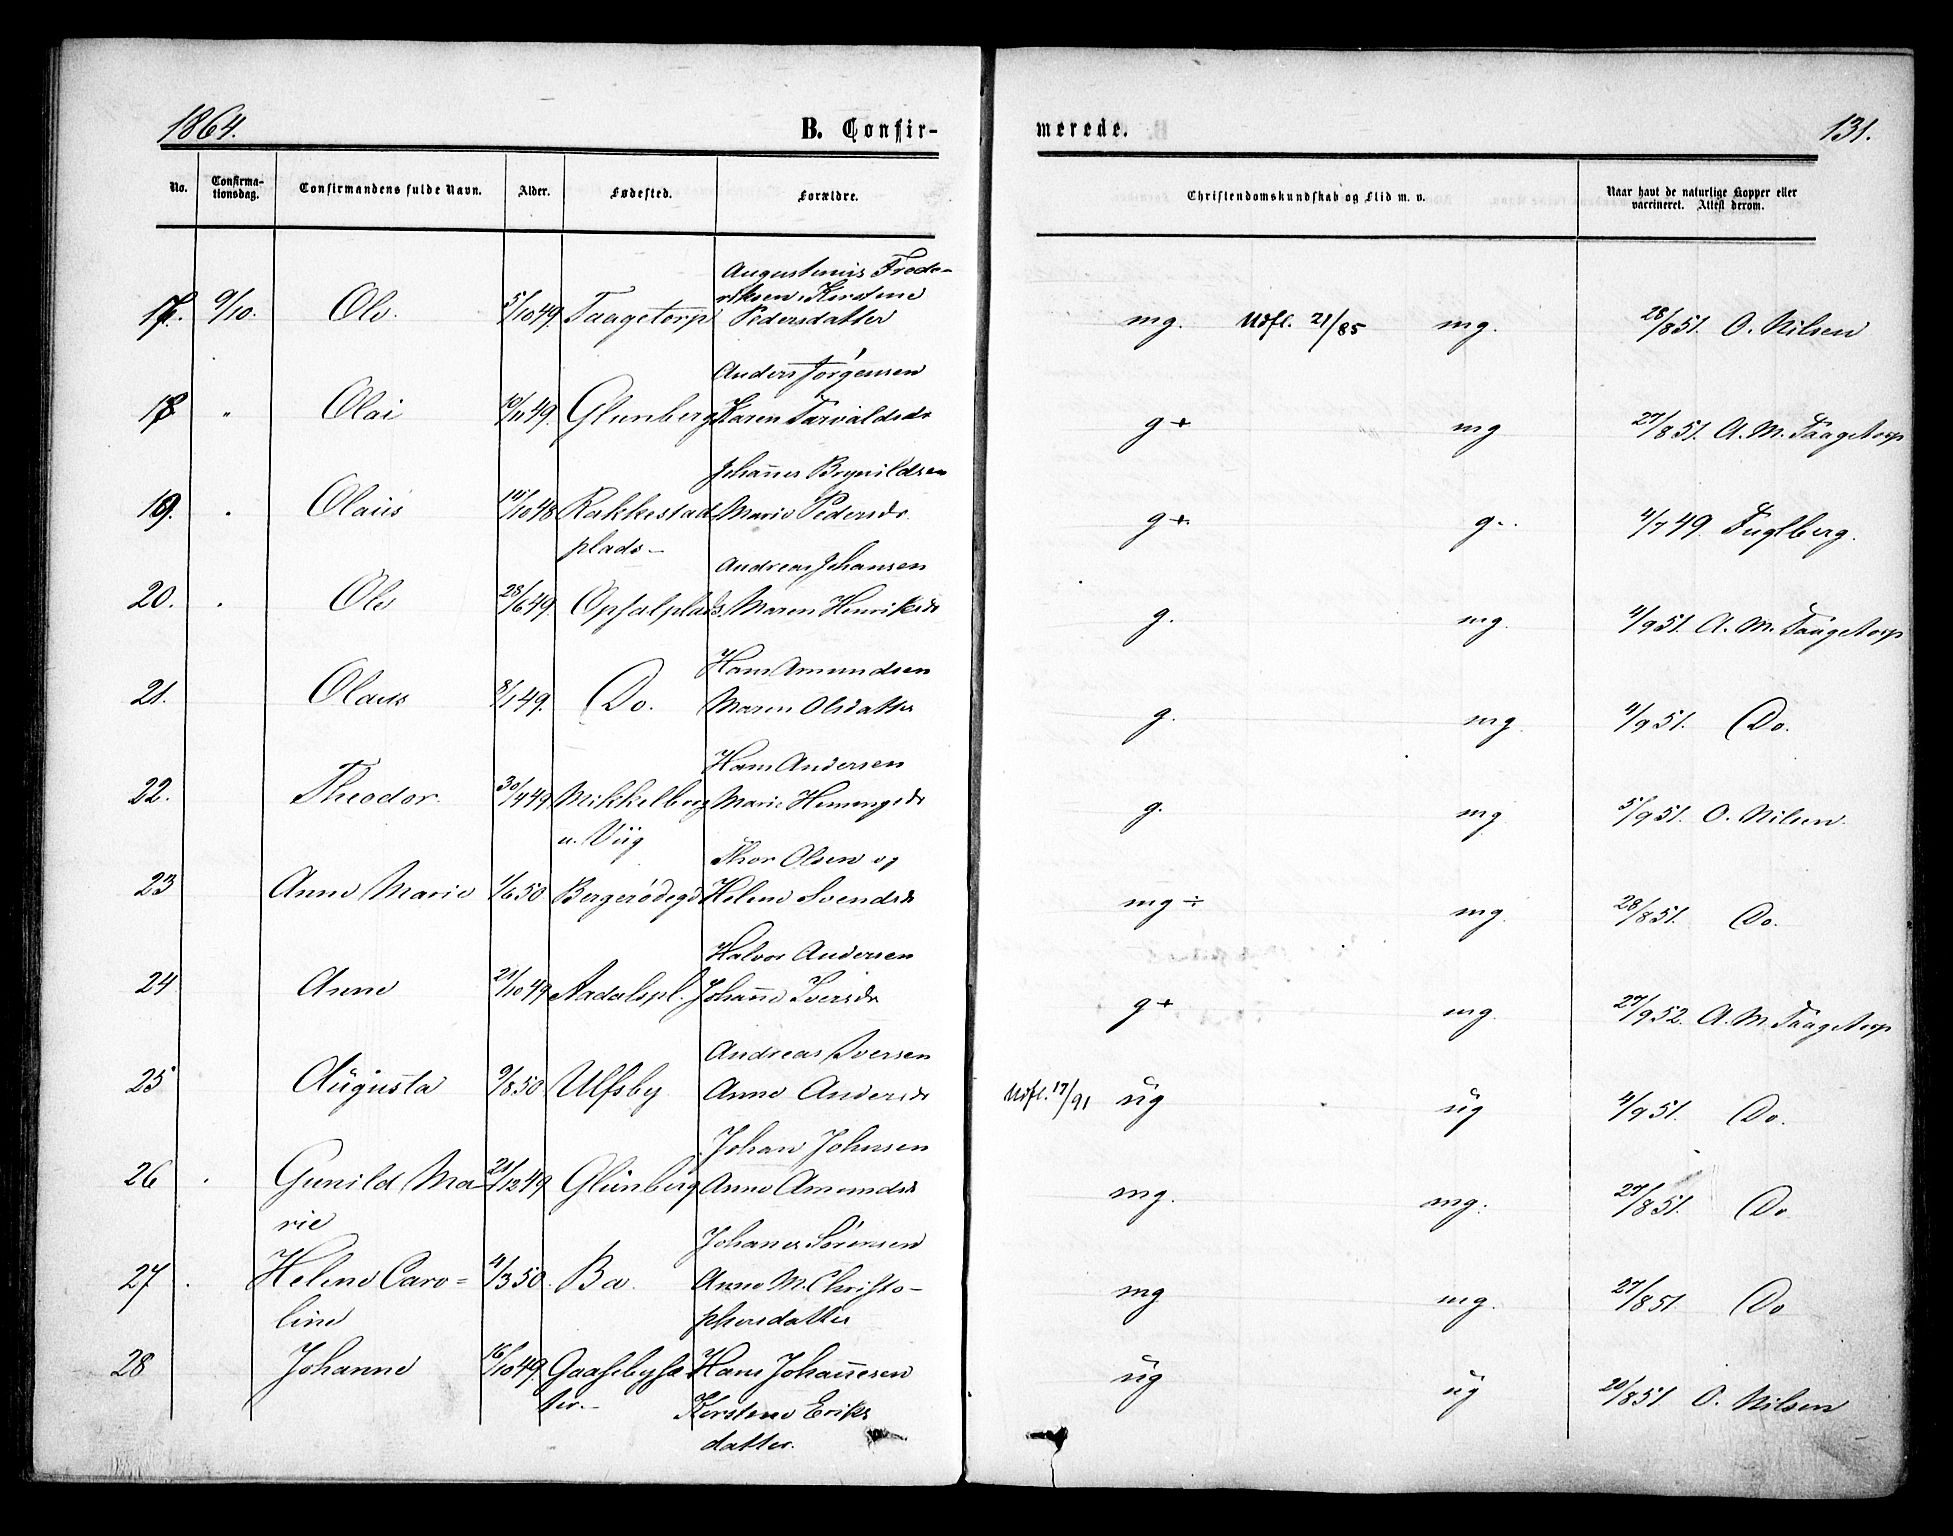 1864.
B. Confir-
merede.
131.
No.
Confirma-
tionsdag.
Confirmandens fulde Navn.
Alder.
Fødested.
Forældre.
Christendomskundskab og Flid m. v.
Naar havt de naturlige Kopper eller
vaccineret. Attest derom.
Augustinius Frede-
riksen, Kirstine
17. 9/10. Ole. 5/10 49. Taagetorp Pedersdatter mg. Udfl. 21/85 mg. 28/8 51. O. Nilsen
Anders Jørgensen
18 " Olai 10/11 49. Glenberg Karen Tarvaldsdr g+ mg 27/8 51. A. M. Taagetorp
Johannes Brynildsen
19. " Olaus 14/10 48 Rakkestad Marie Pedersdr. g+ g. 4/7 49. Fuglberg.
plads-
Andreas Johansen
20. " Ole 28/6 49. Opsalplads, Maren Henriksdr g. mg. 4/9 51. A. M. Taagetorp
Hans Amundsen
21. Olaus 8/1 49. Do. Maren Olsdatter g. mg. 4/9 51. Do.
Hans Andersen
22. Theodor. 30/4 49. Mikkelberg Marie Hemingsdr g. mg 5/9 51. O. Nilsen.
u. Viig
Thor Olsen og
23 Anne Marie 1/6 50 Bergerødegd Helene Svendsdr mg ÷ mg. 28/8 51. Do.
Halvor Andersen
24 Anne 21/10 49 Aadalspl. Johanne Iversdr g+ mg. 27/9 52. A. M. Taagetorp
Andreas Iversen
25 Augusta 9/8 50. Ulfsby Anne Andersdr Udfl. 17/91 ug ug 4/9 51. Do.
Johan Johnsen
26 . Gunild Ma- 21/12 49 Glenberg Anne Amundsdr mg. mg. 27/8 51. Do
rie
Johanes Sørensen
27 . Helene Caro= 4/3 50. Ba. Anne M. Christo- mg mg. 27/8 51. Do
line phersdatter
28 Johanne 16/10 49. Gaasebysæ- Hans Johannesen ug ug 20/8 51 O. Nilsen
ter.- Kirstine Eriks
datter.